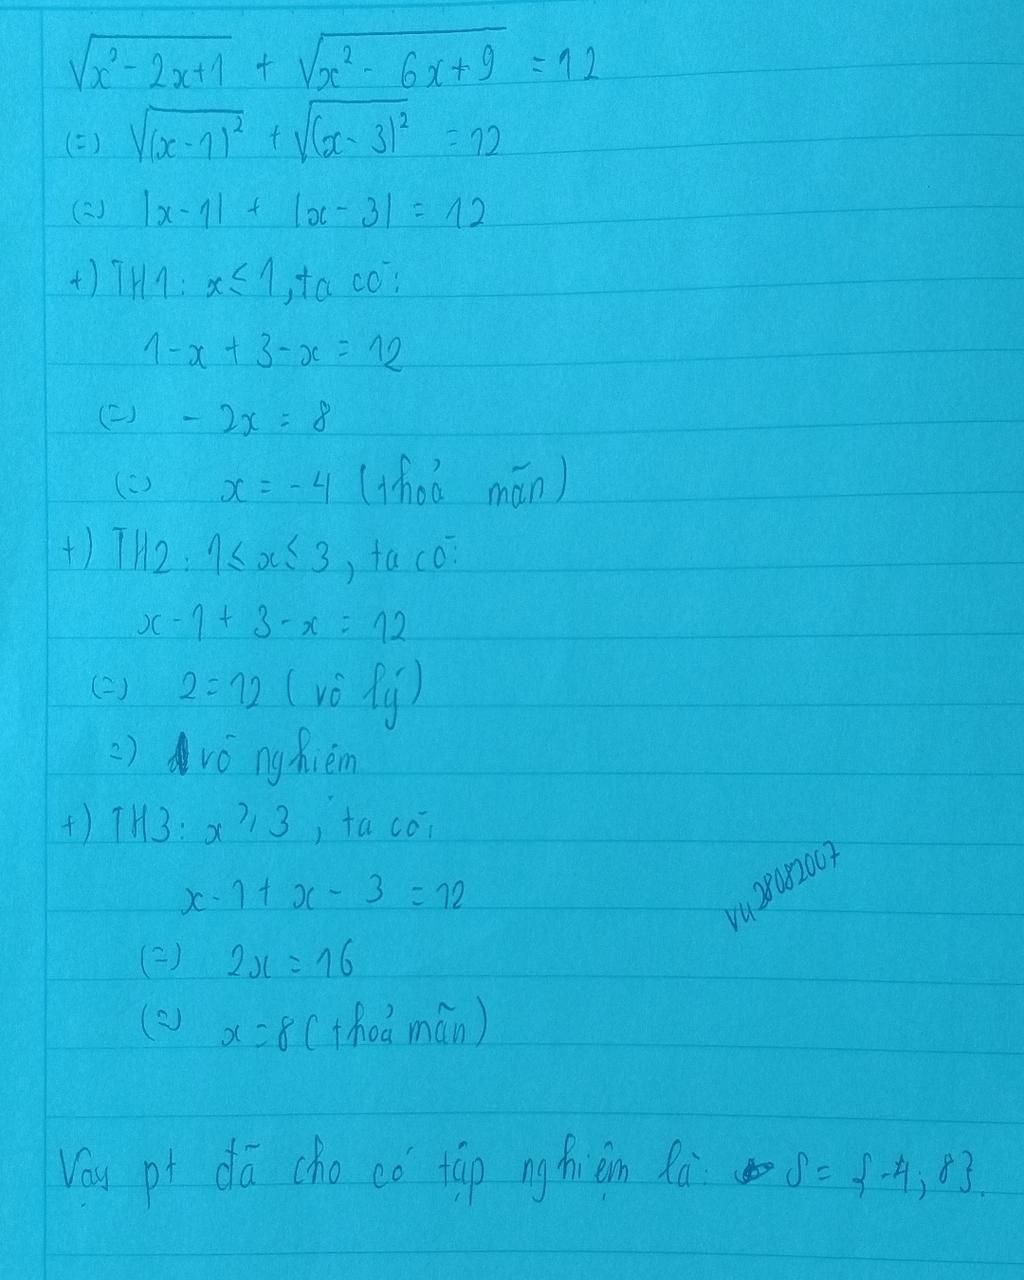 √(x² - 2x+1) + √(x² - 6x+9) = 12
(=) √(x-1)² + √(x-3)² = 12
(=) |x-1| + |x-3| = 12
+) TH1: x ≤ 1, ta có:
1-x + 3-x = 12
(=) - 2x = 8
(=) x = -4 (thoả mãn)
+) TH2: 1 ≤ x ≤ 3, ta có:
x-1+ 3-x = 12
(=) 2=12 (vô lý)
=) vô nghiệm
+) TH3: x ≥ 3, ta có:
x-1+ x-3 = 12
(=) 2x = 16
(=) x = 8 (thoả mãn)
vu28082007
Vậy pt đã cho có tập nghiệm là: S = {-4; 8}.